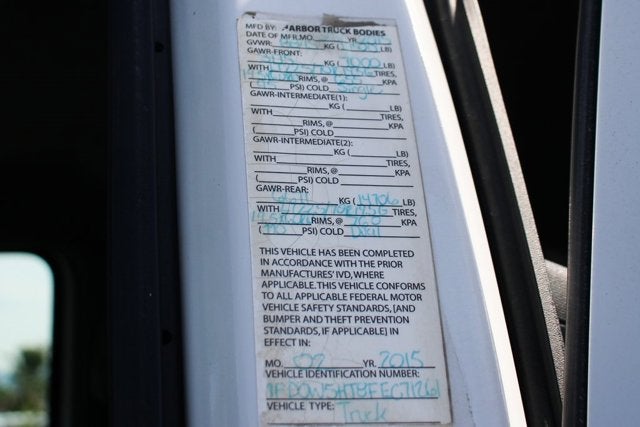 MFD BY: HARBOR TRUCK BODIES
DATE OF MFR.MO. YR.
GVWR: KG ( LB)
GAWR-FRONT:
KG ( 7000 LB)
WITH TIRES,
RIMS, @ KPA
( PSI) COLD Single
GAWR-INTERMEDIATE(1):
KG ( LB)
WITH TIRES,
RIMS, @ KPA
( PSI) COLD
GAWR-INTERMEDIATE(2):
KG ( LB)
WITH TIRES,
RIMS, @ KPA
( PSI) COLD
GAWR-REAR:
KG ( 14706 LB)
WITH TIRES,
RIMS, @ KPA
( PSI) COLD Dual
THIS VEHICLE HAS BEEN COMPLETED
IN ACCORDANCE WITH THE PRIOR
MANUFACTURES' IVD, WHERE
APPLICABLE. THIS VEHICLE CONFORMS
TO ALL APPLICABLE FEDERAL MOTOR
VEHICLE SAFETY STANDARDS, [AND
BUMPER AND THEFT PREVENTION
STANDARDS, IF APPLICABLE] IN
EFFECT IN:
MO. YR. 2015
VEHICLE IDENTIFICATION NUMBER:
1FDOW5HT8FEC71261
VEHICLE TYPE: Truck